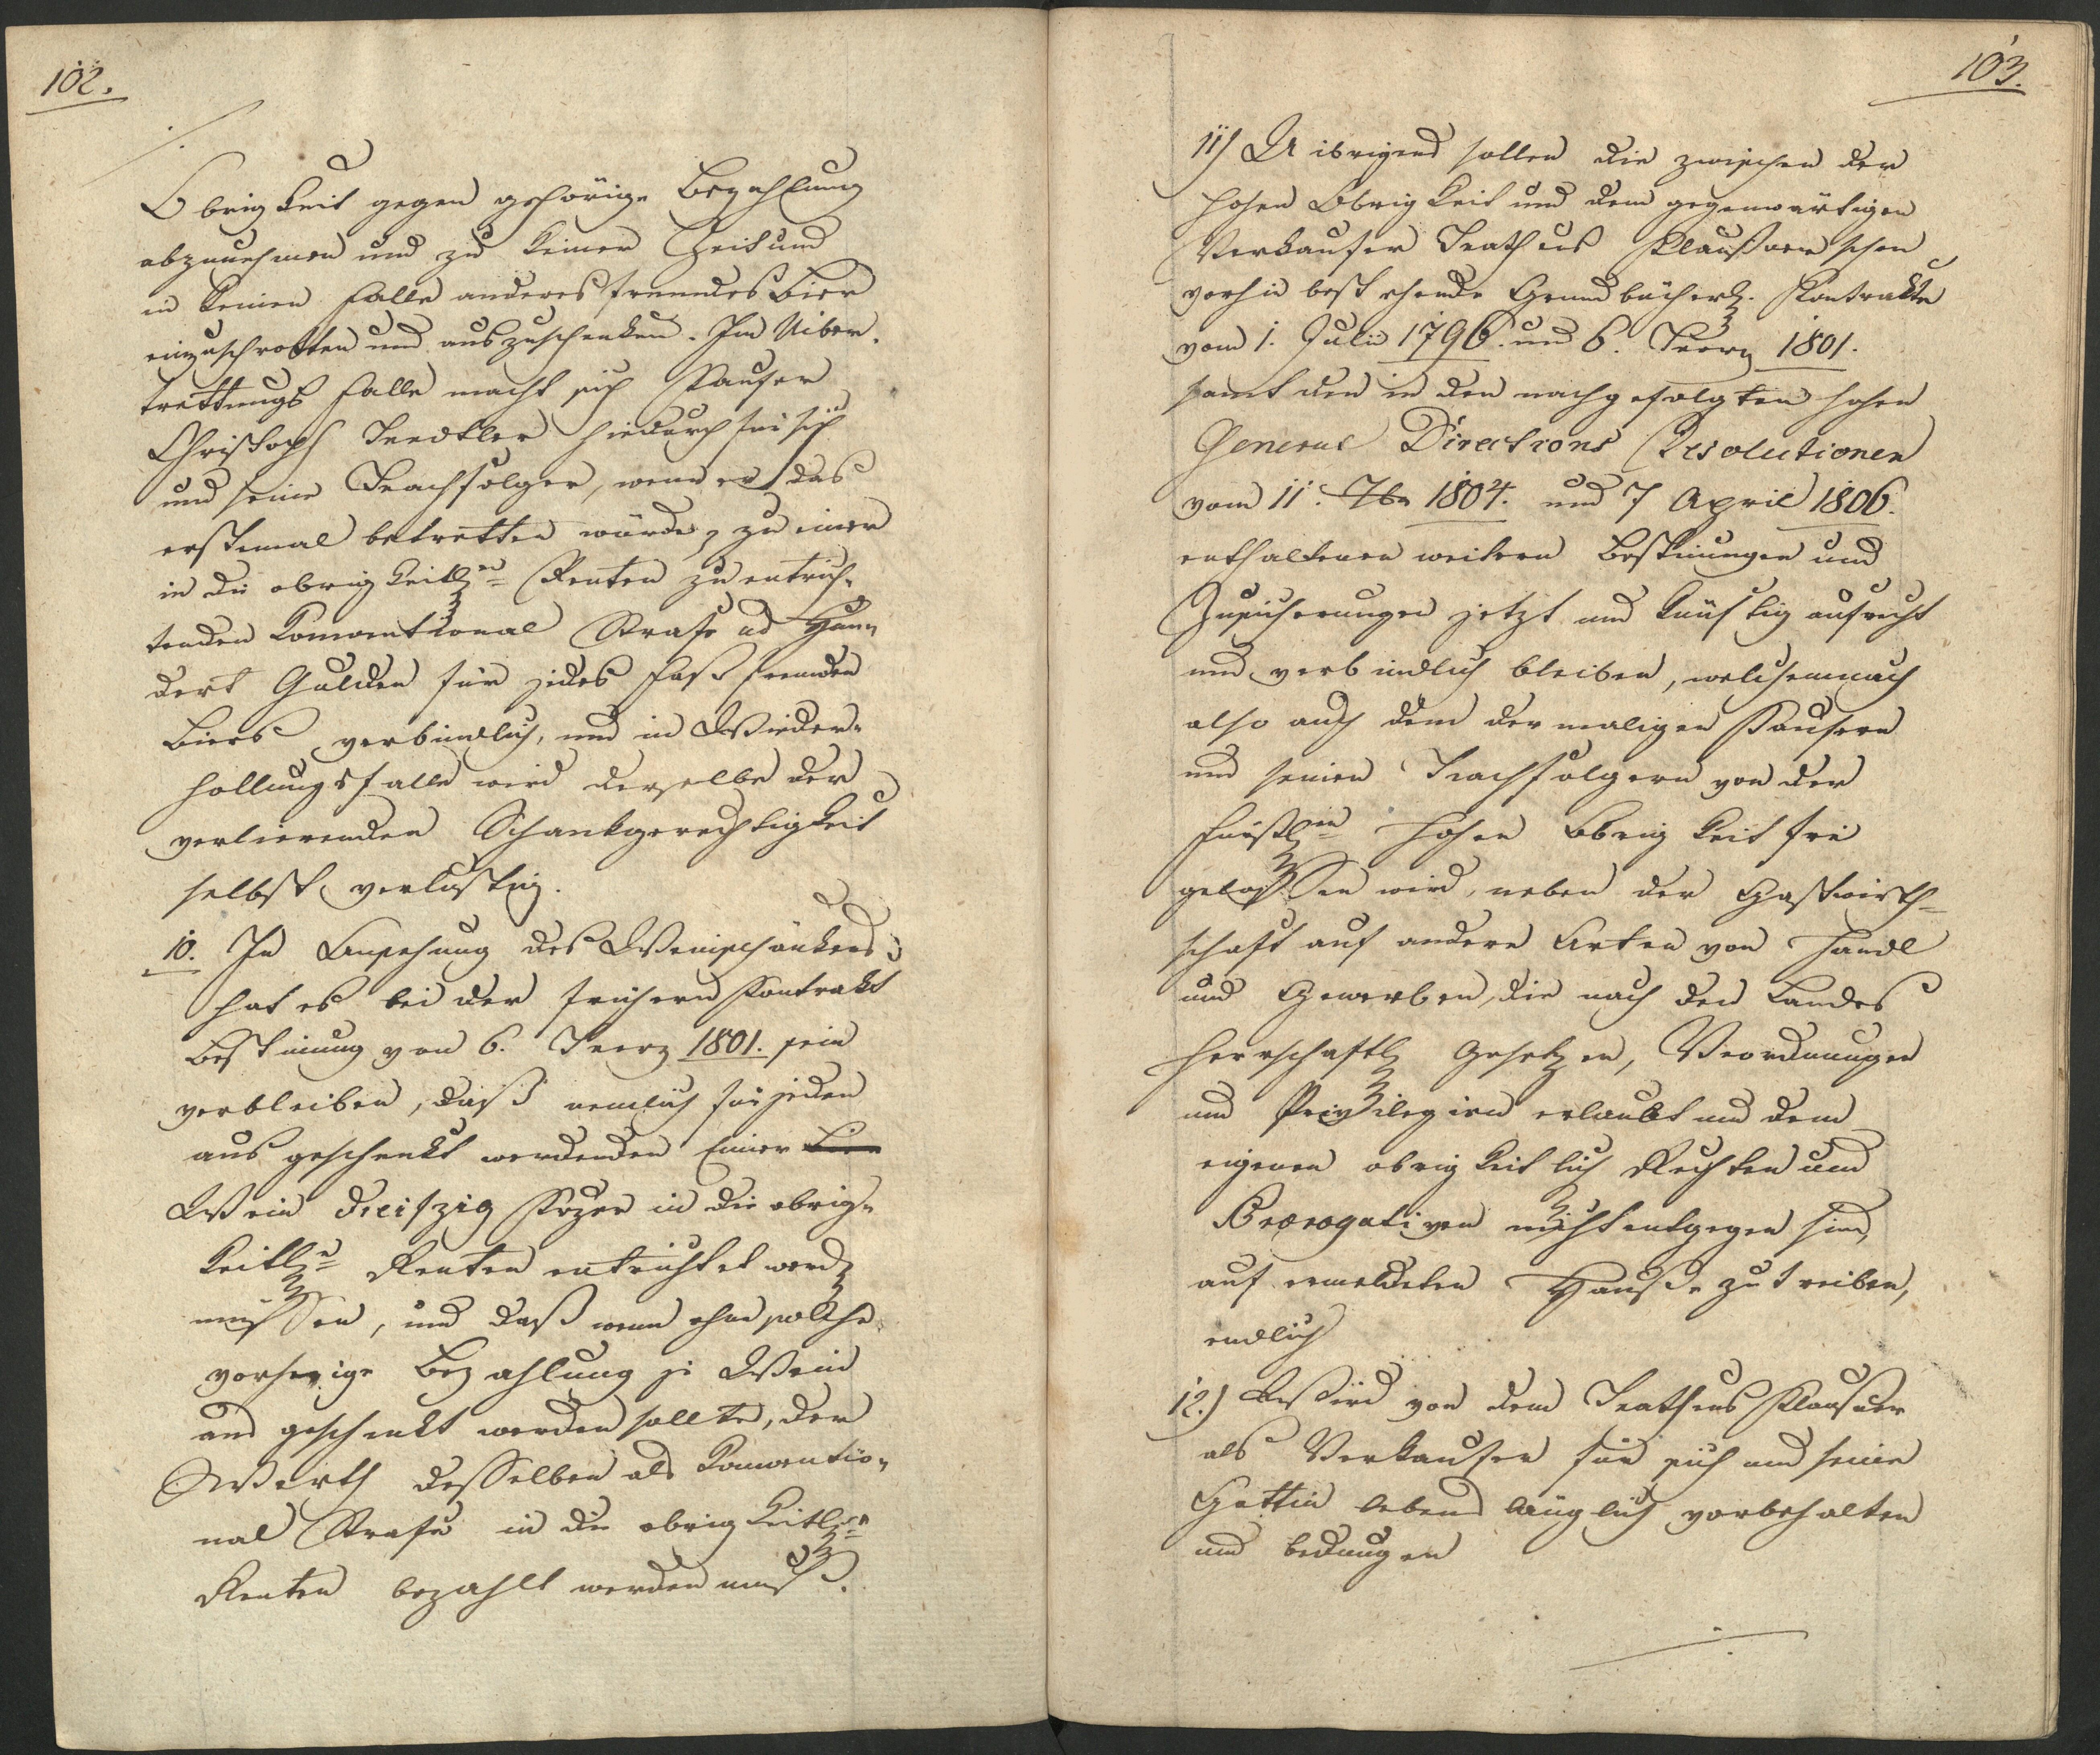 102.
Obrigkeit gegen gehörige Bezahlung
abzunehmen und zu keiner Zeit und
in keinen Falle anderes fremdes Bier
einzuschrotten und auszuschenken. Im Uiber-
trettungs Falle macht sich Kaufer
Christoph hiedurch für sich
und seine Nachfolger, wenn er das
erstemal betretten würde, zu einer
in die obrigkeitlen Renten zu entrich-
tenden Konventional Strafe ad Hun-
dert Gulden für jedes Faß fremden
Biers verbindlich, und in Wieder-
hollungsfalle wird derselbe der
verlierenden Schankgerechtigkeit
selbst verlustig.
10. In Ansehung des Weinschänkens
hat es bei der frühern Kontrakt
Bestimung von 6. März 1801. sein
verbleiben, daß nemlich für jeden
ausgeschenkt werdenden Eimer Bier
Wein dreißzig Kr in die obrig-
keitlen Renten entrichtet werd
müssen, und daß wenn ohne solche
vorherige Bezahlung je Wein
aus geschenkt werden sollte, der
Werth desselben als Konventio-
nal Strafe in die obrigkeitlen
Renten bezahlt werden muß.
103.
11) Uibrigens sollen die zwischen der
hohen Obrigkeit und dem gegenwärtigen
Verkaufer Mathias Klaußner schon
vorhin bestehende Grundbücherl. Kontrakte
vom 1. Julii 1796. und 6. März 1801.
samt den in den nachgefolgten hohen
General Directions Resolutionen
vom 11. 7br 1804. und 7 April 1806.
enthaltenen weitern Bestimungen und
Zusicherungen jetzt und künftig aufrecht
und verbindlich bleiben, welchemnach
also auch dem dermaligen Kaufern
und seinen Nachfolgern von der
fürstlen hohen Obrigkeit frei
gelassen wird, neben der Gastwirth-
schaft auf andere Arten von Handl
und Gewerben, die nach den Landes
herrschaftl Gesetzen, Verordnungen
und Privilegien erlaubt und dem
eigenen obrigkeitlich Rechten und
Prærogativen nicht entgegen sind,
auf ermeldeten Hauße zu treiben,
endlich
12.) Wird von dem Mathias Klaußner
als Verkaufer für sich und seine
Gattin lebenslänglich vorbehalten
und bedungen